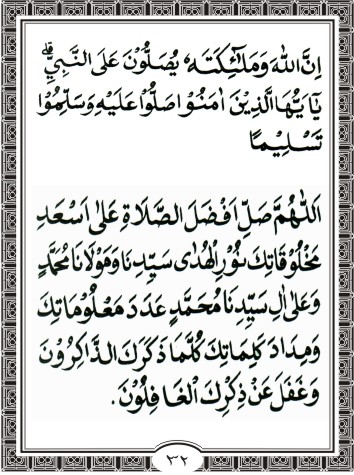 اِنَّ اللهَ وَمَلٰٓئِكَتَهٗ يُصَلُّوْنَ عَلَى النَّبِيِّۗ
يٰٓاَيُّهَا الَّذِيْنَ اٰمَنُوْا صَلُّوْا عَلَيْهِ وَسَلِّمُوْا
تَسْلِيْمًا
اَللّٰهُمَّ صَلِّ اَفْضَلَ الصَّلَاةِ عَلٰى اَسْعَدِ
مَخْلُوْقَاتِكَ نُوْرِ الْهُدٰى سَيِّدِنَا وَمَوْلَانَا مُحَمَّدٍ
وَعَلٰى اٰلِ سَيِّدِنَا مُحَمَّدٍ عَدَدَ مَعْلُوْمَاتِكَ
وَمِدَادَ كَلِمَاتِكَ كُلَّمَا ذَكَرَكَ الذَّاكِرُوْنَ
وَغَفَلَ عَنْ ذِكْرِكَ الْغَافِلُوْنَ.
٣٢